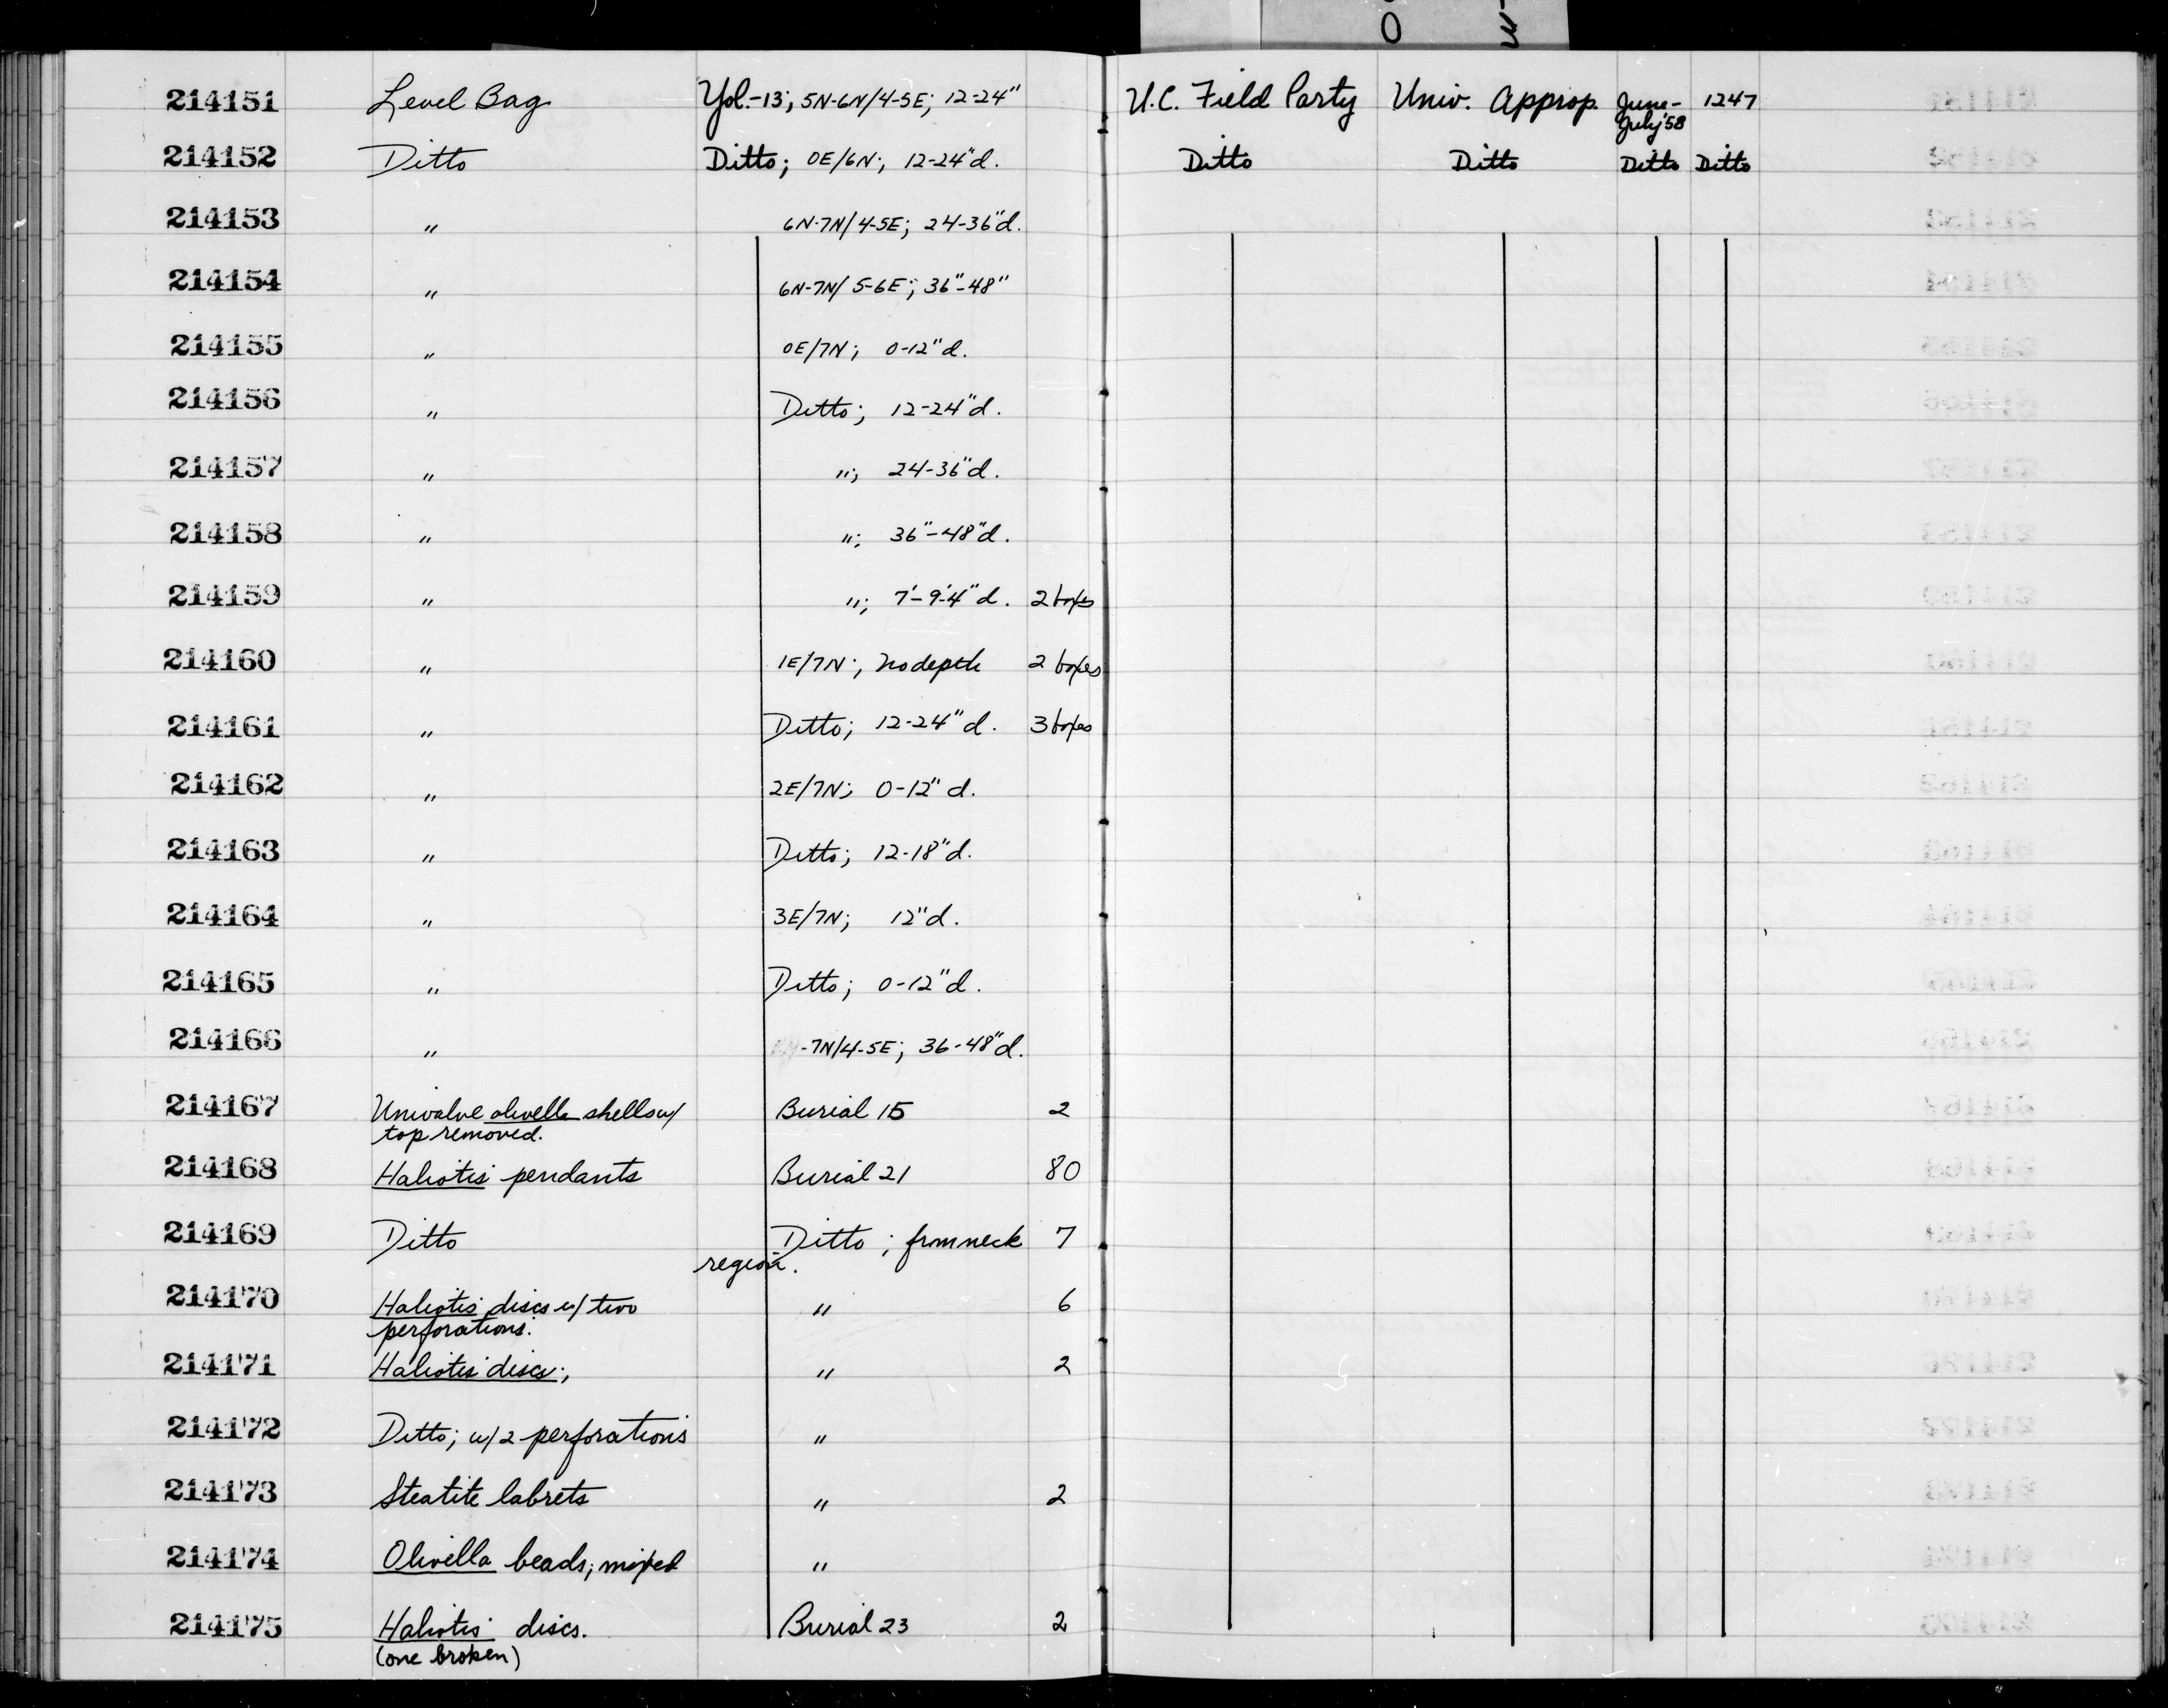 214151 Level Bag Yol.-13; 5N-6N/4-5E; 12-24" U.C. Field Party Univ. Approp. June- 1247
July '58
214152 Ditto Ditto; 0E/6N; 12-24"d. Ditto Ditto Ditto Ditto
214153 " 6N-7N/4-5E; 24-36"d.
214154 " 6N-7N/5-6E; 36"-48"
214155 " 0E/7N; 0-12"d.
214156 " Ditto; 12-24"d.
214157 " "; 24-36"d.
214158 " "; 36"-48"d.
214159 " "; 7'-9'4"d. 2 boxes
214160 " 1E/7N; no depth 2 boxes
214161 " Ditto; 12-24"d. 3 boxes
214162 " 2E/7N; 0-12"d.
214163 " Ditto; 12-18"d.
214164 " 3E/7N; 12"d.
214165 " Ditto; 0-12"d.
214166 " -7N/4-5E; 36-48"d.
214167 Univalve olivella shells w/ Burial 15 2
top removed.
214168 Haliotis pendants Burial 21 80
214169 Ditto Ditto; frm neck 7
region.
214170 Haliotis discs w/ two " 6
perforations.
214171 Haliotis discs; " 2
214172 Ditto; w/2 perforations "
214173 Steatite labrets " 2
214174 Olivella beads; mixed "
214175 Haliotis discs. Burial 23 2
(one broken)